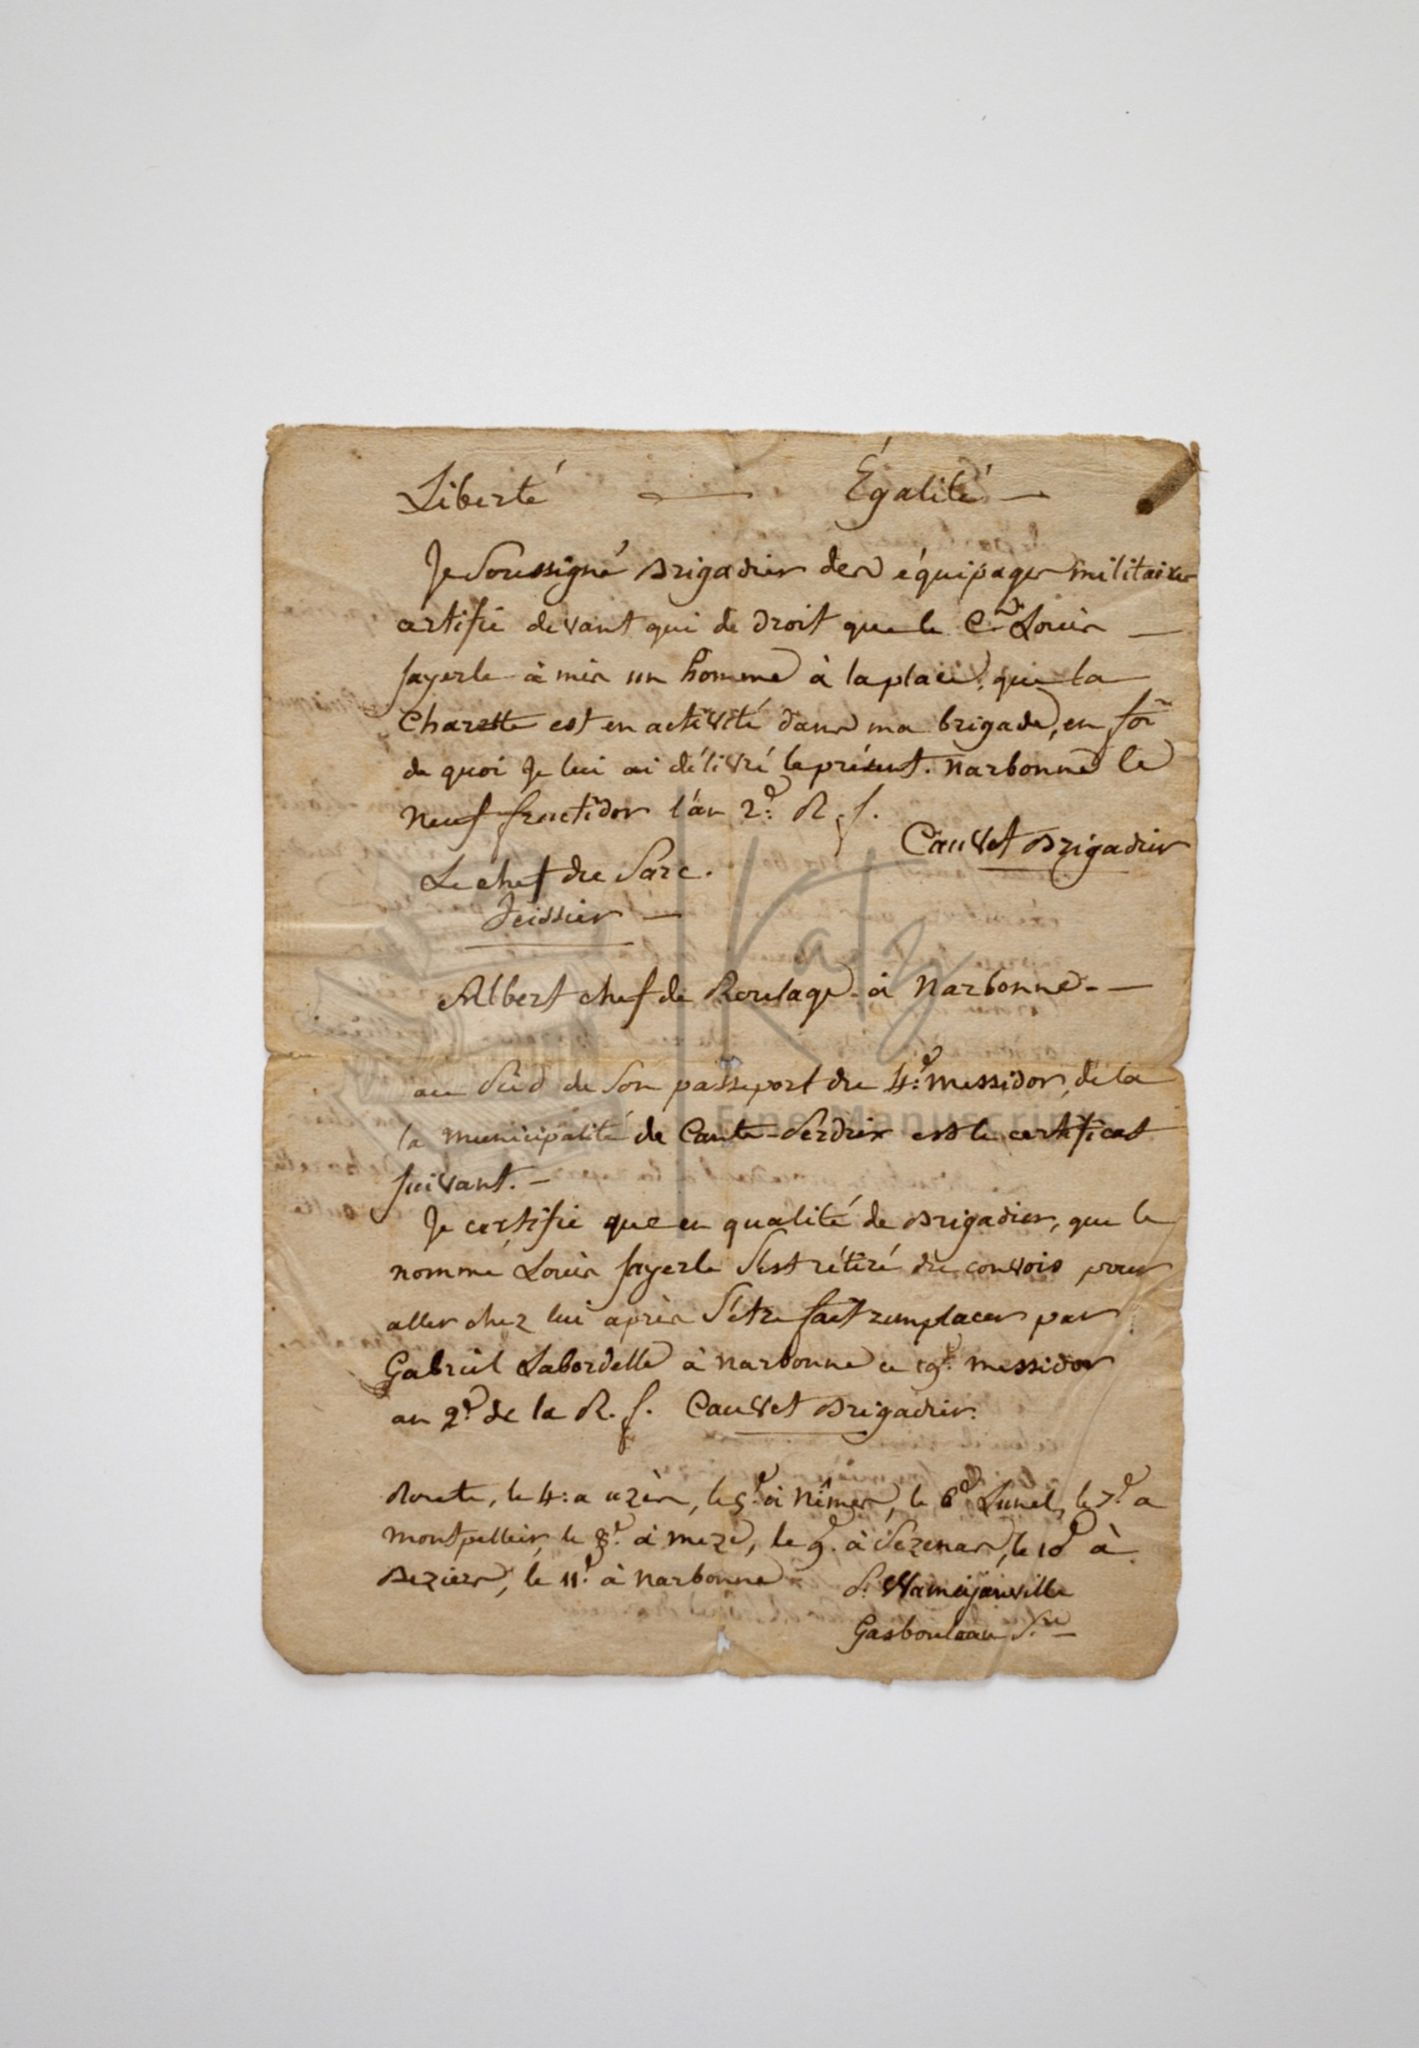 Liberté — Égalité —
Je Soussigné Brigadier des équipages militaires
certifie devant qui de droit que le C.en Louis —
fayerle à mis un homme à la place, que la
Charette est en activité dans ma brigade, en foi
de quoi Je lui ai délivré le présent. Narbonne le
Neuf fructidor l'an 2.e R. f.
Cauvet Brigadier
Le chef du Parc.
Teissier —
Albert chef de Roulage à Narbonne. —
au Pied de Son passeport du 4.e messidor, de la
la municipalité de Cante-Perdrix est le certificat
suivant. —
Je certifie que en qualité de Brigadier, que le
nommé Louis fayerle S'est rétiré du convois pour
aller chez lui après S'être fait remplacer par
Gabriel Labordelle à Narbonne ce 19.e messidor
an 2.e de la R. f. Cauvet Brigadier.
Route, le 4: a uzès, le 5.e à Nîmes, le 6.e Lunel, le 7.e a
Montpellier, le 8.e à meze, le 9. à Pezenas, le 10.e à
Beziers, le 11.e à Narbonne
Katz
Fine Manuscripts